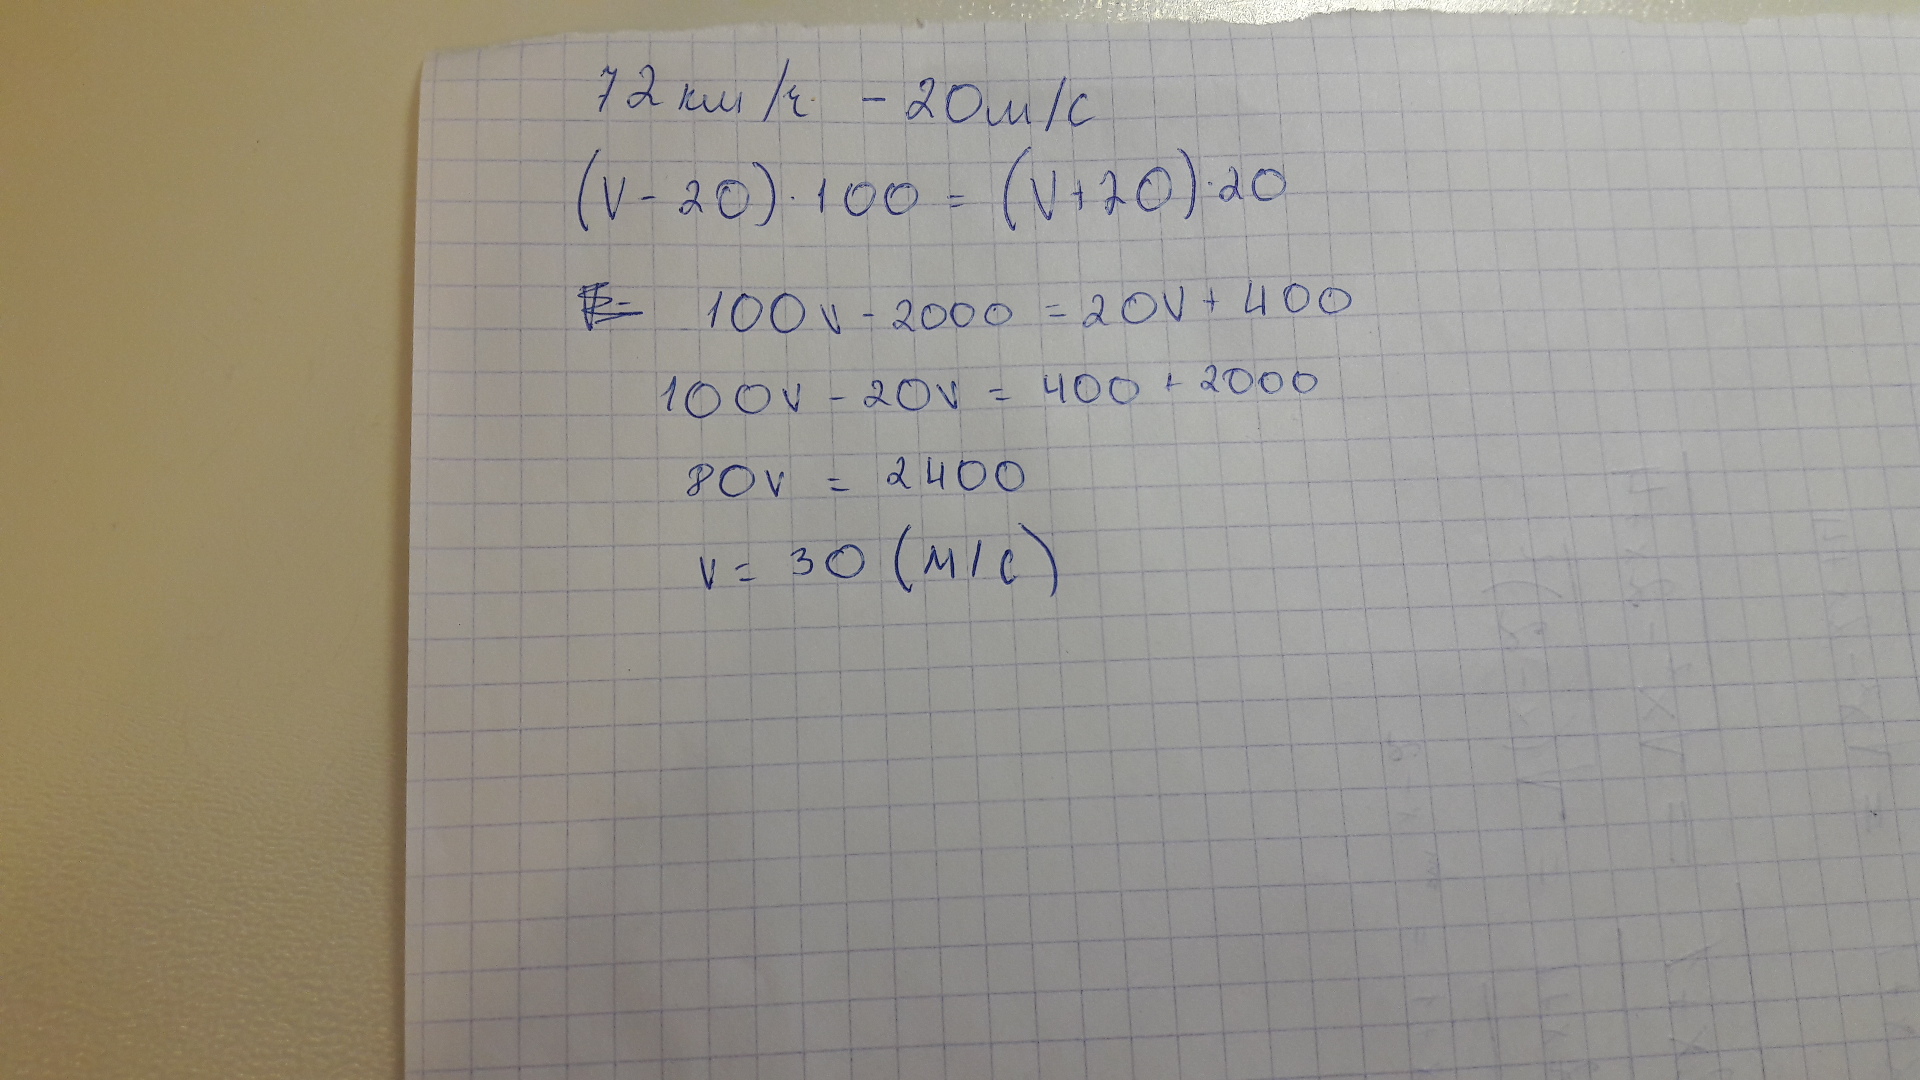 72 км/ч - 20 м/с
(v - 20) · 100 = (v + 20) · 20
100v - 2000 = 20v + 400
100v - 20v = 400 + 2000
80v = 2400
v = 30 (м/с)